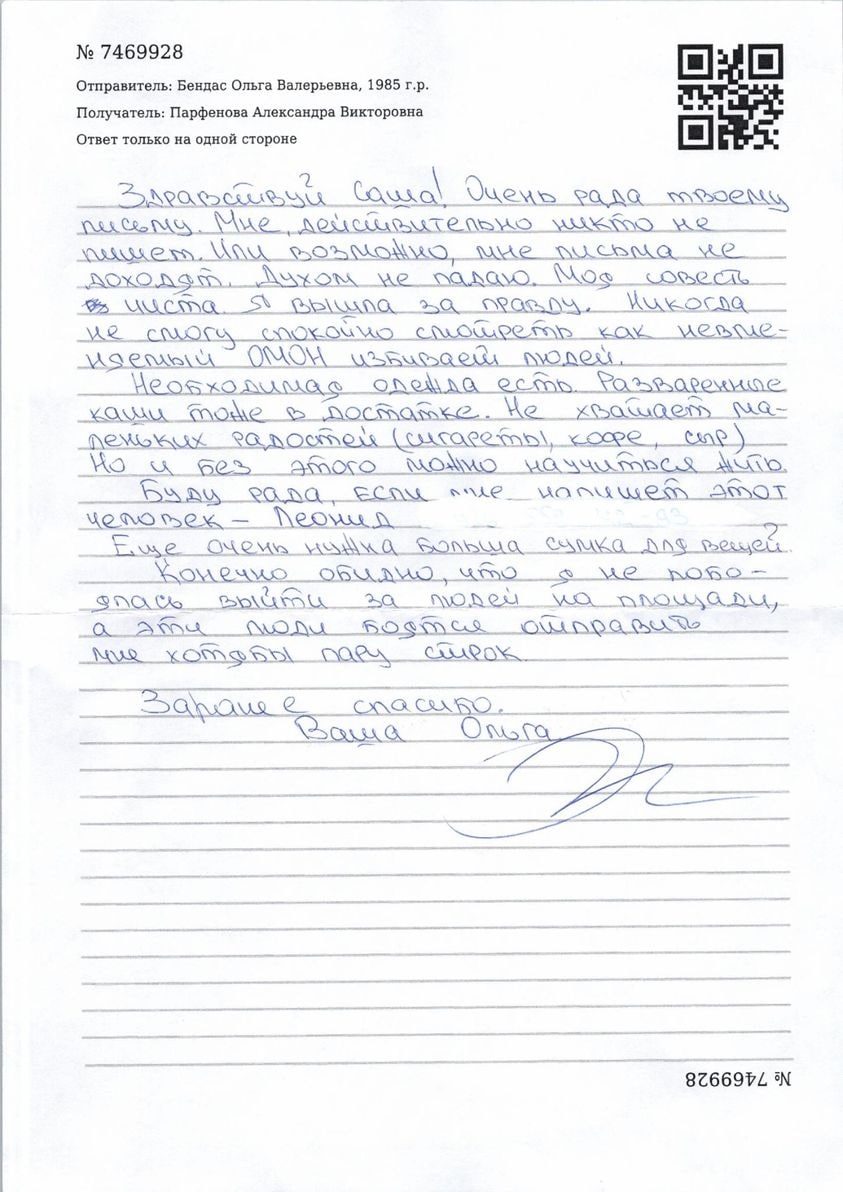 № 7469928
Отправитель: Бендас Ольга Валерьевна, 1985 г.р.
Получатель: Парфенова Александра Викторовна
Ответ только на одной стороне
Здравствуй Саша! Очень рада твоему
письму. Мне действительно никто не
пишет. Или возможно, мне письма не
доходят. Духом не падаю. Моя совесть
чиста. Я вышла за правду. Никогда
не смогу спокойно смотреть как невме-
няемый ОМОН избивает людей.
Необходимая одежда есть. Разваренные
каши тоже в достатке. Не хватает ма-
леньких радостей (сигареты, кофе, сыр)
Но и без этого можно научиться жить.
Буду рада, если мне напишет этот
человек – Леонид
Еще очень нужна больша сумка для вещей.
Конечно обидно, что я не побо-
ялась выйти за людей на площади,
а эти люди боятся отправить
мне хотябы пару строк.
Заранее спасибо.
Ваша Ольга
№ 7469928